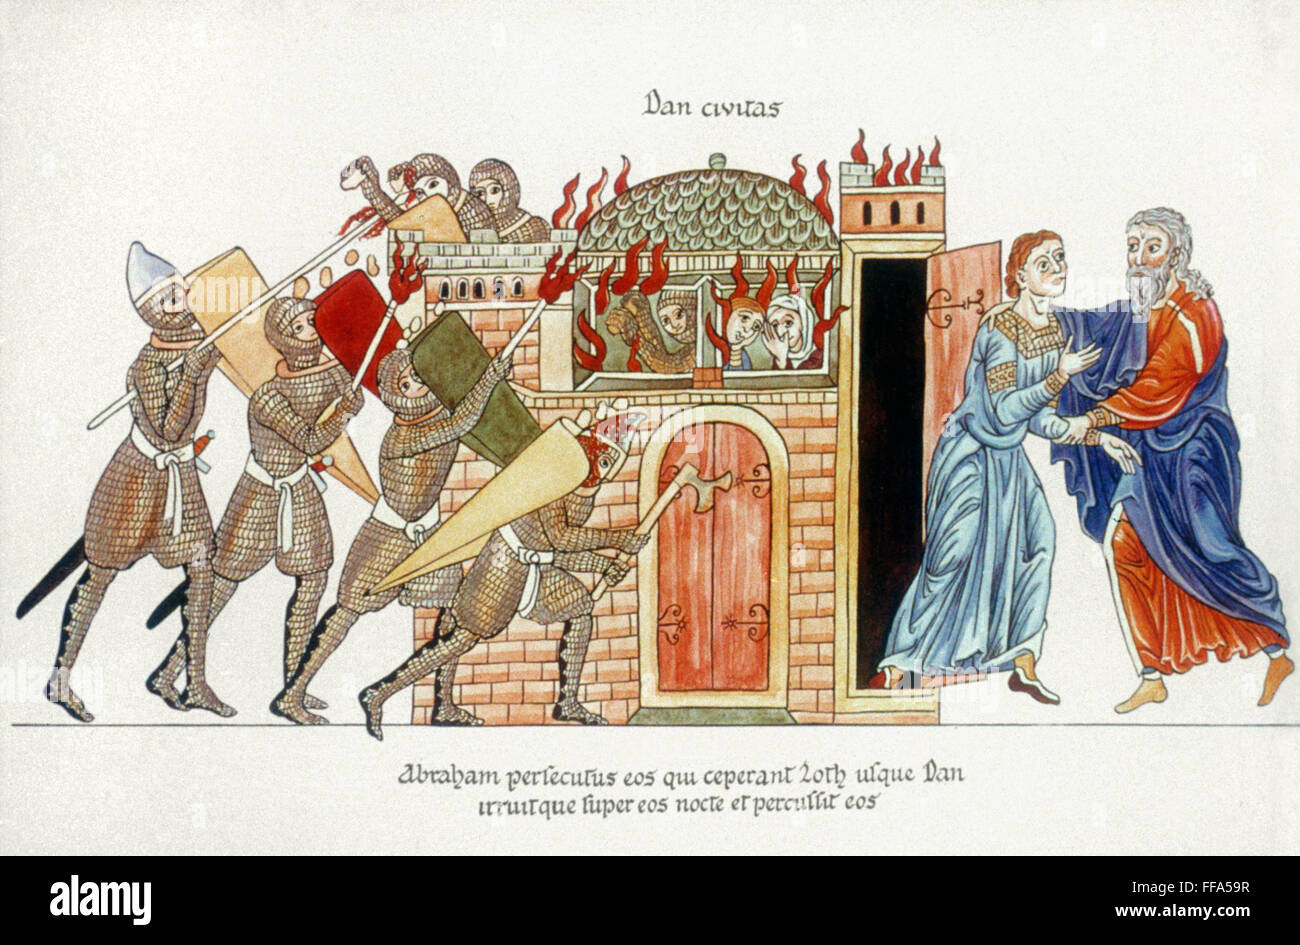 Dan civitas
Abraham persecutus eos qui ceperant Loth usque Dan
irruitque super eos nocte et percussit eos
alamy
a
alamy
a
alamy
Image ID: FFA59R
www.alamy.com